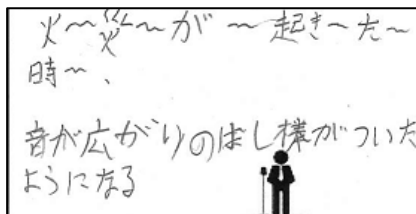 火～災～が～起き～た～
時～、
音が広がりのばし様がついた
ようになる